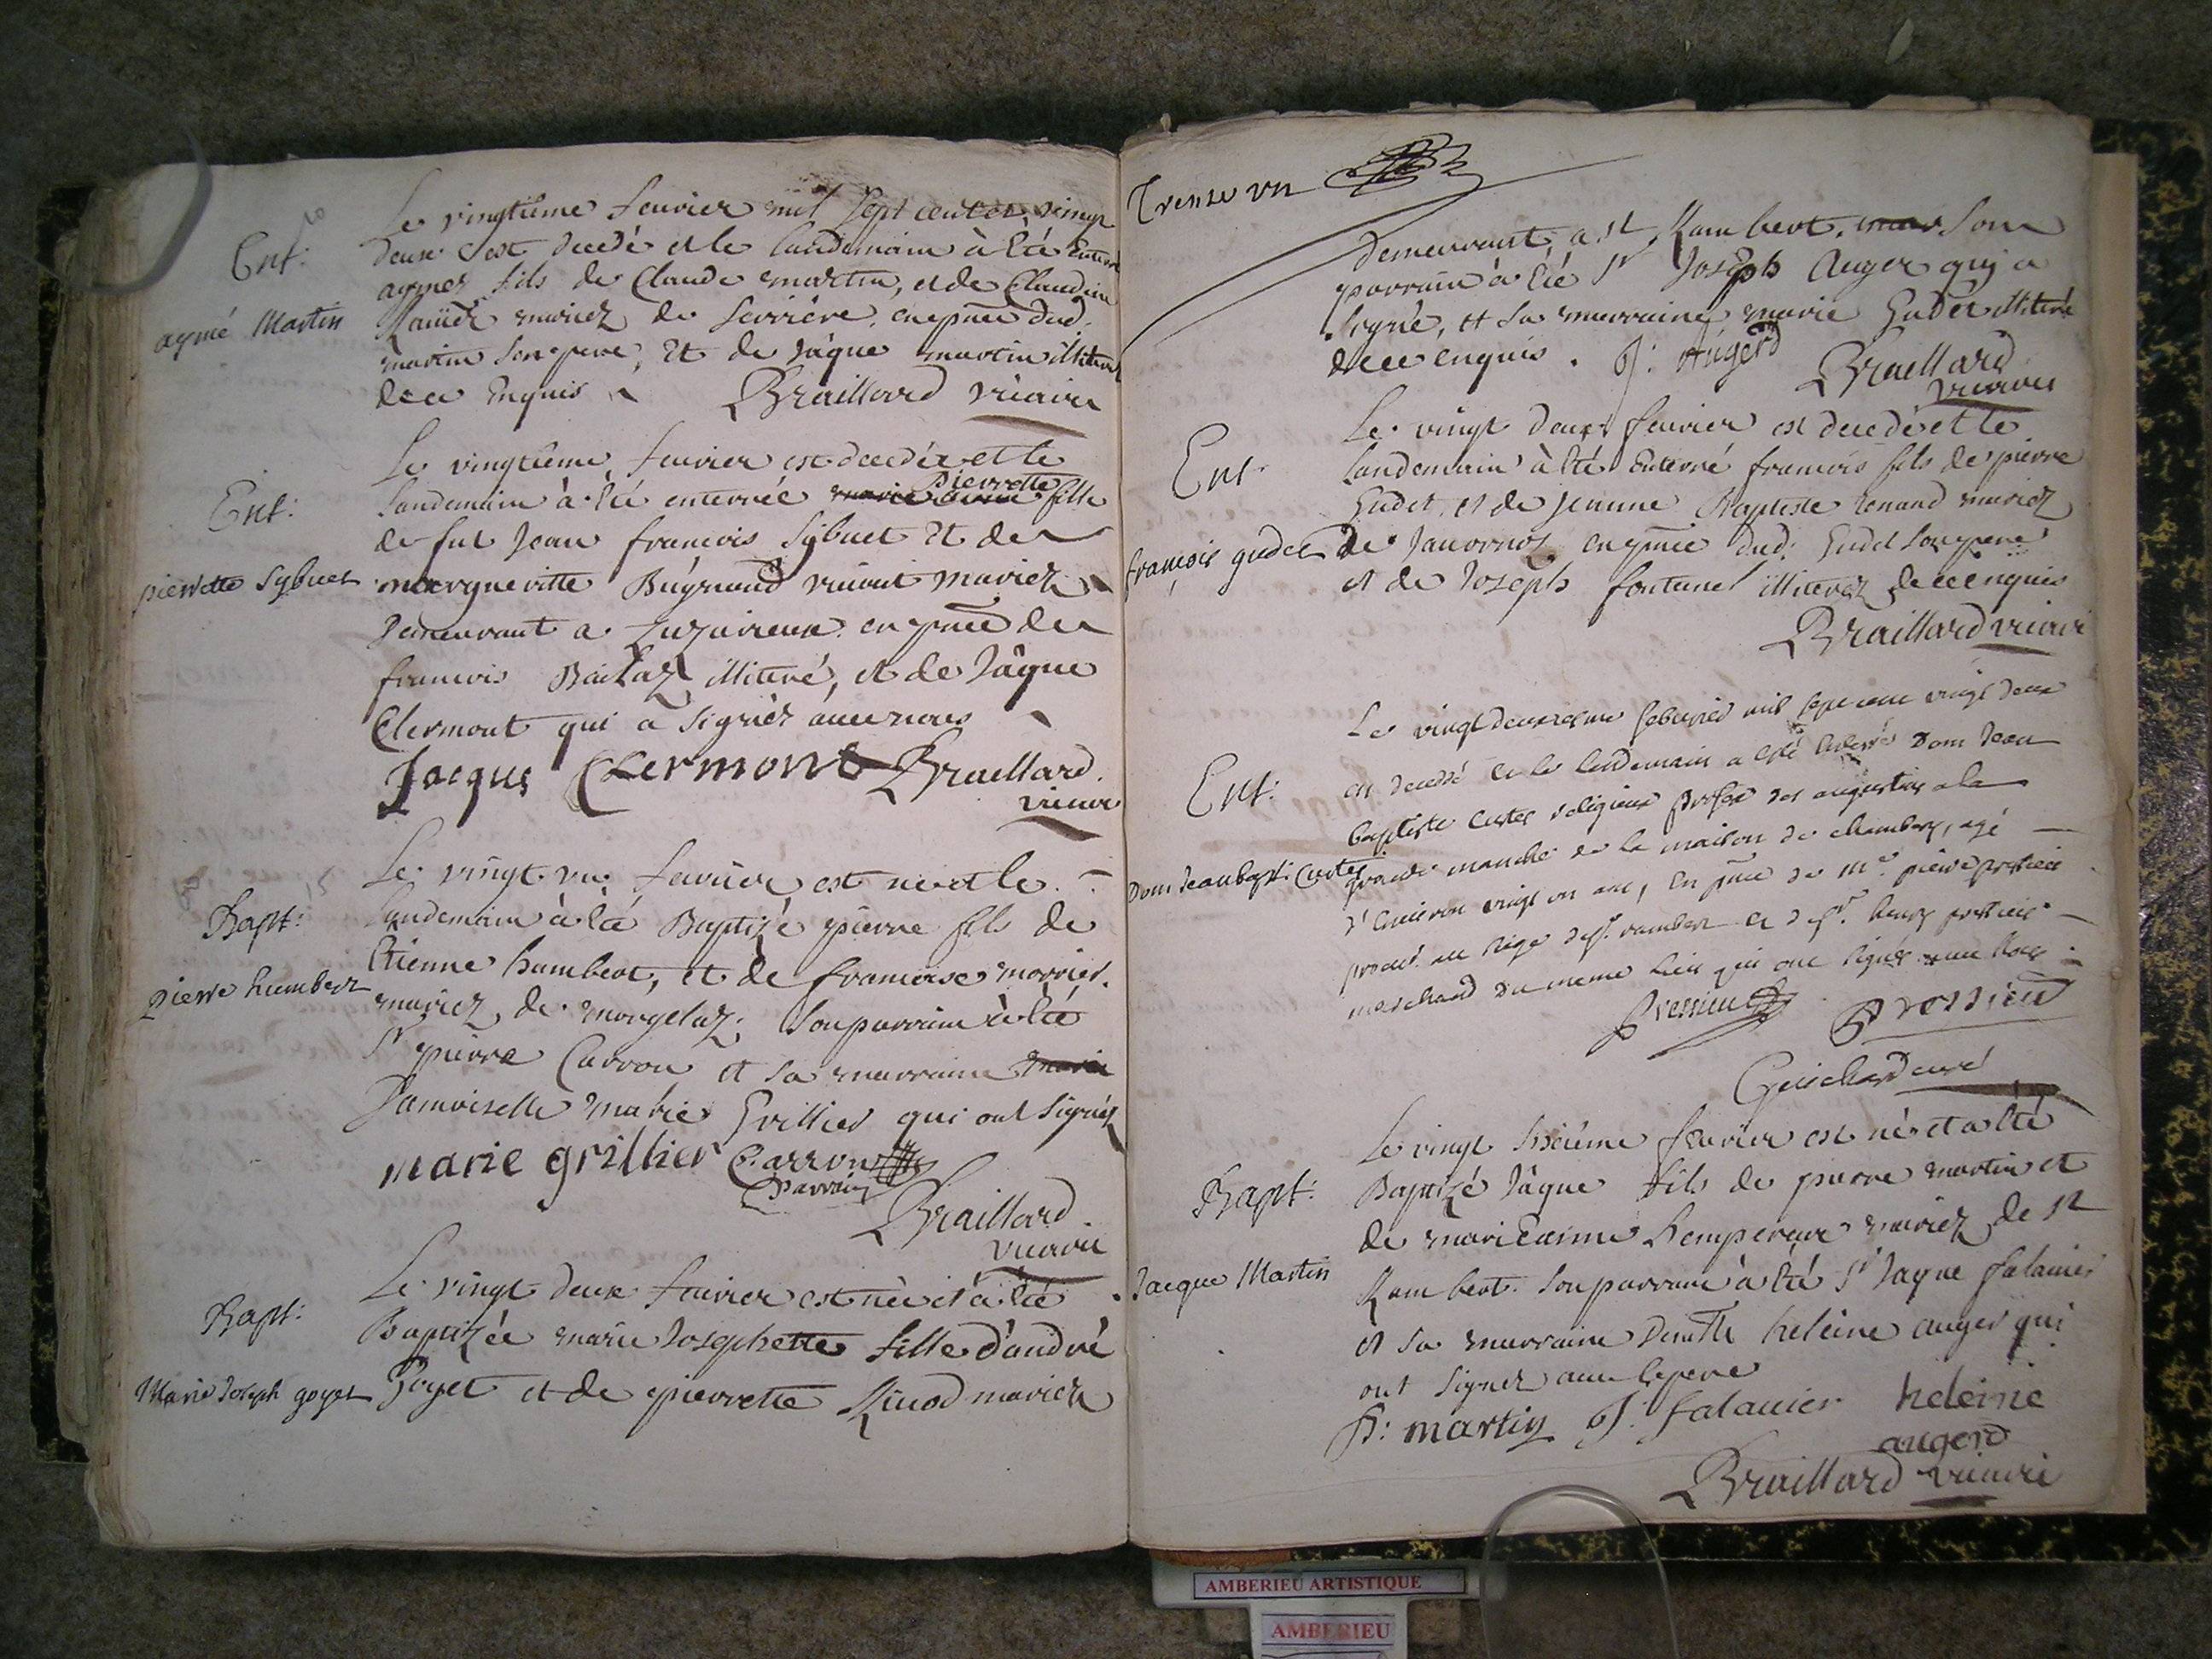 Ent:
aymé Martin
Le vingtième feuvier mil sept cent et vingt
deux est decedé et le landemain à été Enterré
aymez fils de Claude martin, et de Claudine
mariez de Serriére, en pnce dud.
martin son pere, Et de Jâque martin illiterez
de ce Enquis Braillard vicaire
Ent:
pierrette Sybuet
Le vingtiême feuvier est decedée et le
landemain à été enterrée marie anne Pierrette fille
de fut Jean francois Sybuet Et de
margueritte Bugnand vivant mariez
demeurant a en pnce de
francois illiteré, et de Jâque
Clermont qui a signéz avec nous
Jacque Clermont Braillard
vicaire
Bapt:
pierre humbert
Le vingt un feuvier est né et le
landemain à été Baptizé pierre fils de
Etienne humbert, et de francoise morrier
mariez de morgelaz; son parrain à été
Sr pierre Carron et sa marraine marie
Damoiselle marie Grillier qui ont signéz
marie grillier Carron
Parrain
Braillard
vicaire
Bapt:
Marie Joseph goyet
Le vingt deux feuvier est née et à été
Baptizée marie Josephette fille d'andré
Goyet et de pierrette mariez
Trente un
demeurant a St Rambert. mar Son
parrain à été Sr Joseph Auger qui a
signé, et sa marraine marie Gudet illiteré
de ce enquis. J: Augerd
Braillard
vicaire
Ent
francois gudet
Le vingt deux feuvier est decedé et le
landemain à été Enterré francois fils de pierre
Gudet et de jeanne Baptiste Renand mariez
de Javornoz en pnce dud: Gudet son pere
et de Joseph fontanel illiterez de ce enquis
Braillard vicaire
Ent:
Dom Jean bapt: Curtet
Le vingt deuxiesme febvrier mil sept cent vingt deux
est decedé et le lendemain a esté enterré Dom Jean
baptiste Curtet religieux profex des augustins a la
grande manche de la maison de chambery, agé
d'environ vingt un ans, en pnce de me. pierre pressieu
procur. au siege de st. rambert et de sr. henry pressieu
marchand du meme lieu qui ont signés avec nous
Pressieu Pressieu
Guichard curé
Bapt:
Jacque Martin
Le vingt sixiéme feuvier est né et a été
Baptizé Jâque fils de pierre martin et
de marie anne Lempereur mariez de St
Rambert. son parrain à été Sr Jaque falavier
et sa marraine demlle heleine auger qui
ont signez avec le pere
P: martin J: falavier heleine
augerd
Braillard vicaire
AMBERIEU ARTISTIQUE
AMBERIEU